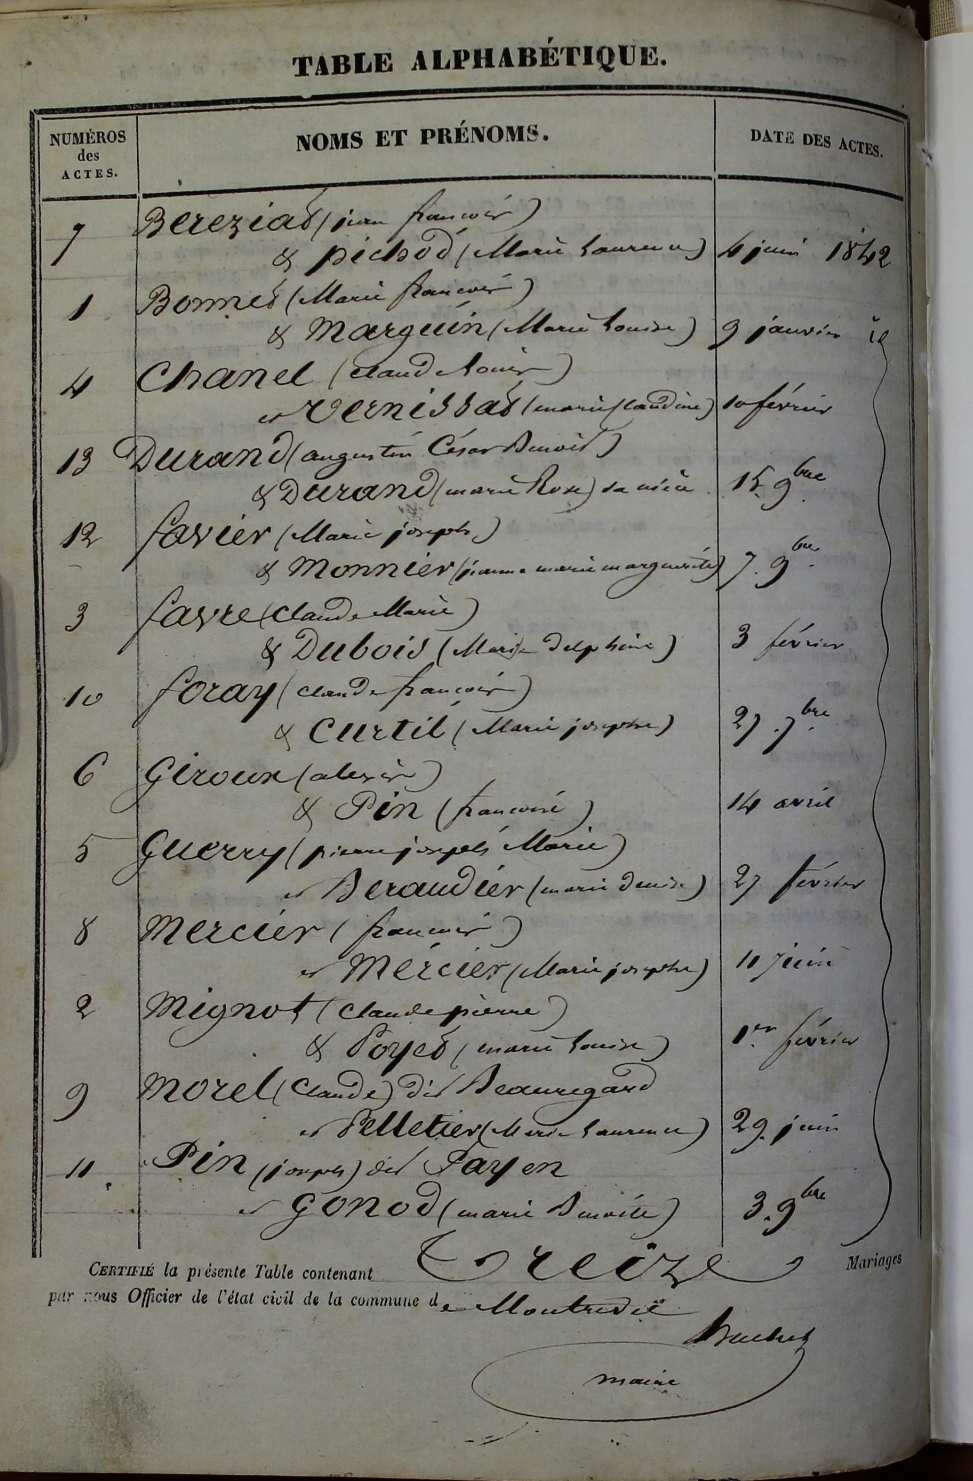 TABLE ALPHABÉTIQUE.
NUMÉROS des ACTES. NOMS ET PRÉNOMS. DATE DES ACTES.
7 Bereziat (jean françois)
& pichod (Marie Laurence) 4 juin 1842
1 Bonnet (Marie françois)
& Marguin (Marie Louise) 9 janvier id
4 Chanel (Claude Louis)
et Vernissat (marie claudine) 10 février
13 Durand (augustin César Benoit)
& Durand (marie Rose) sa nièce 15. 9bre
12 favier (Marie joseph)
& Monnier (jeanne marie marguerite) 7. 9bre
3 favre (Claude Marie)
& Dubois (Marie delphine) 3 février
10 foray (Claude françois)
& Curtil (Marie josephte) 27. 7bre
6 Giroux (alexis)
& Pin (françoise) 14 avril
5 Guerry (pierre joseph Marie)
et Beraudier (marie denise) 27 février
8 Mercier (françois)
et Mercier (Marie josephte) 11 juin
2 Mignot (Claude pierre)
& Poyet (marie Louise) 1er février
9 Morel (Claude) dit Beauregard
et Pelletier (Marie Laurence) 29 juin
11 Pin (joseph) dit Payen
et Gonod (marie Benoite) 3. 9bre
CERTIFIÉ la présente Table contenant Treize Mariages
par nous Officier de l'état civil de la commune de
maire